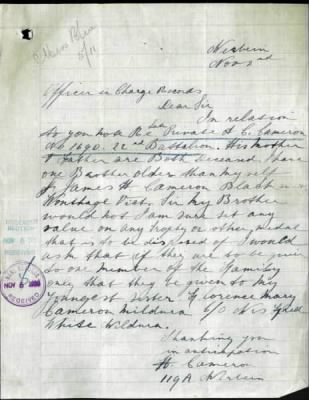 Nov 2nd
Officer in Charge Records
Dear Sir
In relation
to you note Re Late Private A C Cameron
No 1690. 22nd Battalion. His Mother
& Father are Both deceased I have
one Brother older than myself
James H Cameron Black
Wonthaggi Vict. Sir My Brother
would not I am sure set any
value on any Trophy or other medal
that is to be disposed of I would
ask that if they are to be given
to one member of the Family
only that they be given to My
Youngest Sister Florence Mary
Cameron Mildura C/o Mrs
White Mildura.
Thanking you
in anticipation
H Cameron
119A
NOV 6
RECEIVED